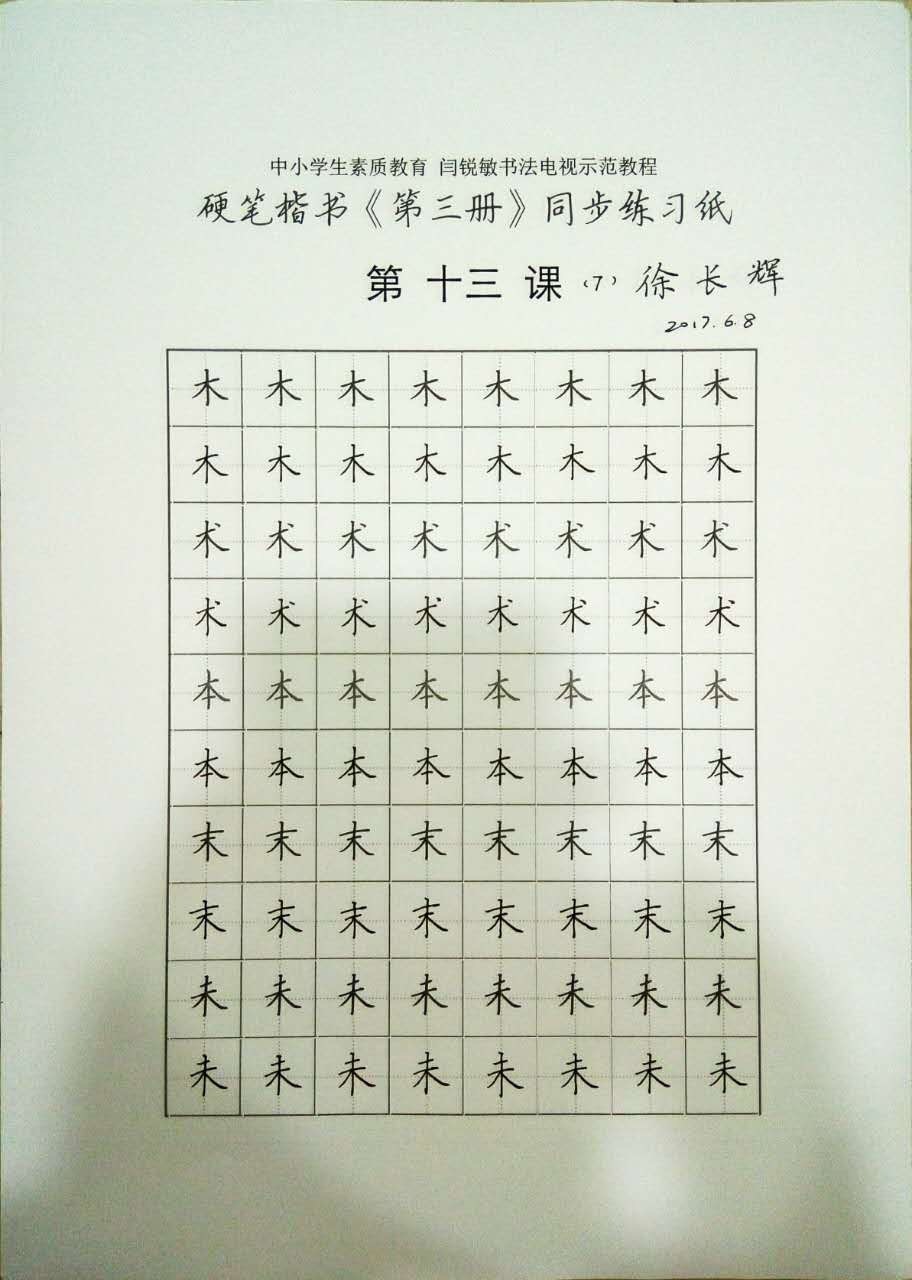 中小学生素质教育 闫锐敏书法电视示范教程
硬笔楷书《第三册》同步练习纸
第 十三 课 （7） 徐长辉
2017.6.8
木 木 木 木 木 木 木 木
木 木 木 木 木 木 木 木
术 术 术 术 术 术 术 术
术 术 术 术 术 术 术 术
本 本 本 本 本 本 本 本
本 本 本 本 本 本 本 本
末 末 末 末 末 末 末 末
末 末 末 末 末 末 末 末
未 未 未 未 未 未 未 未
未 未 未 未 未 未 未 未